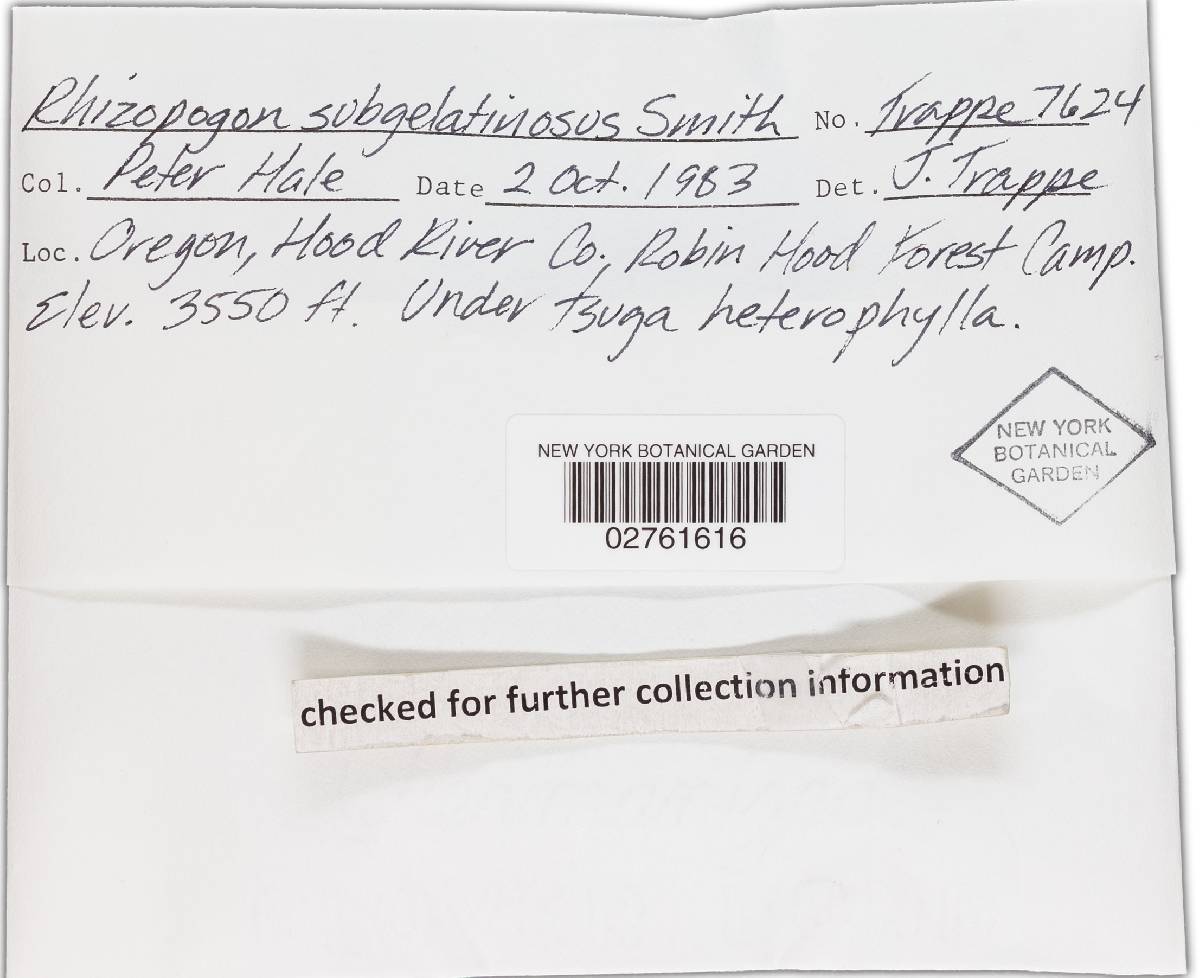 Rhizopogon subgelatinosus Smith No. Trappe 7624
Col. Peter Hale Date 2 Oct. 1983 Det. J. Trappe
Loc. Oregon, Hood River Co., Robin Hood Forest Camp.
Elev. 3550 ft. Under Tsuga heterophylla.
NEW YORK
BOTANICAL
GARDEN
NEW YORK BOTANICAL GARDEN
02761616
checked for further collection information